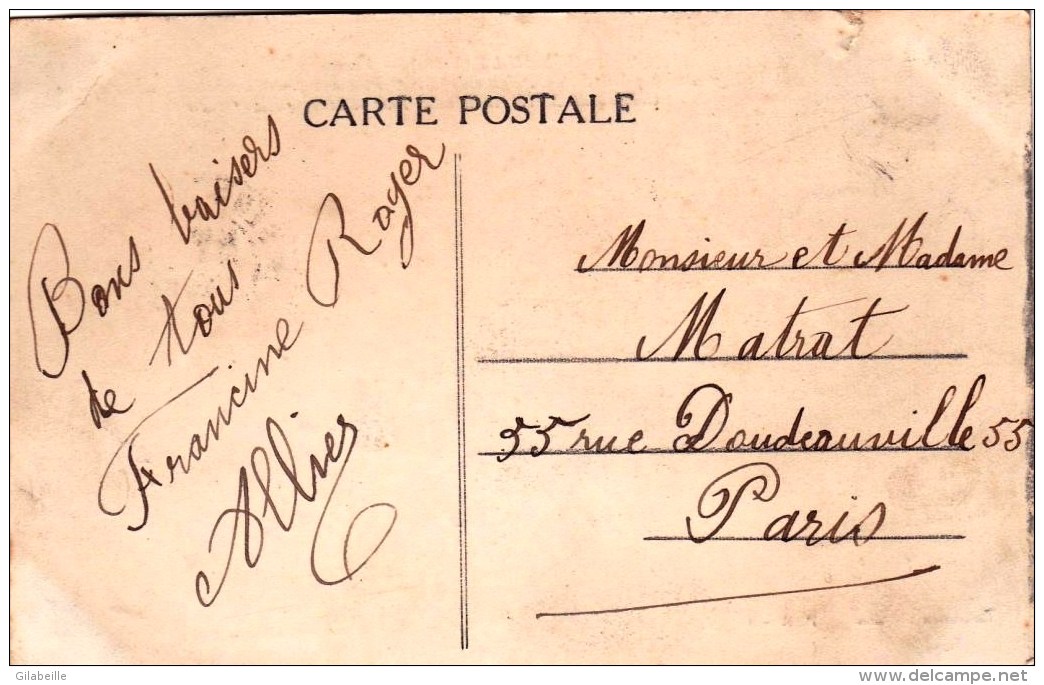 CARTE POSTALE
Bons baisers
de tous
Francine Roger
Monsieur et Madame
Matrat
55 rue Doudeauville 55
Paris
Gilabeille
delcampe.net